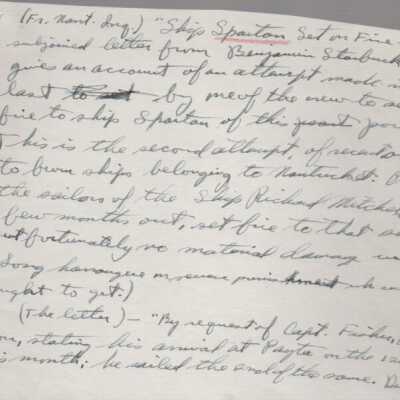 (Fr. Nant. Inq.) "Ship Spartan Set on Fire
subjoined letter from Benjamin Starbuck
give an account of an attempt made
last by me of the crew to
fire to ship Spartan of this port
This is the second attempt, of recent
to burn ships belonging to Nantucket.
the sailors of the Ship Richard Mitchell
few months out, set fire to that
but fortunately no material damage
Long harangue on severe punishment
ought to get.)
(The letter) — "By request of Capt. Fisher,
stating his arrival at Payta on the
is month; he sailed the end of the same.